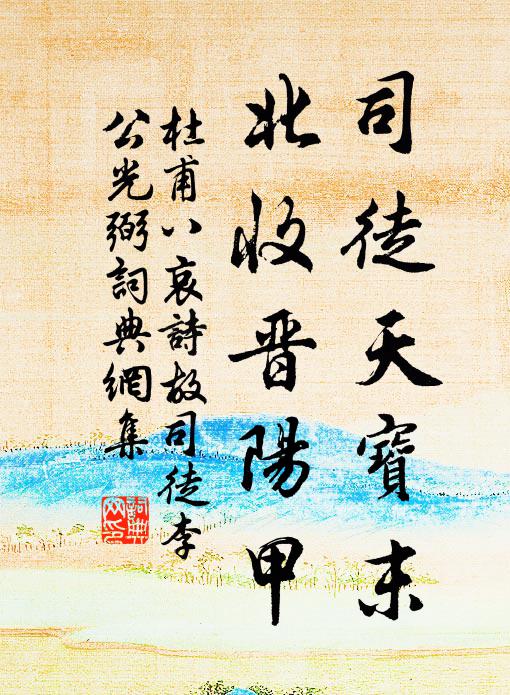 司徒天寶末
北收晉陽甲
杜甫八哀詩故司徒李
公光弼詞典網集